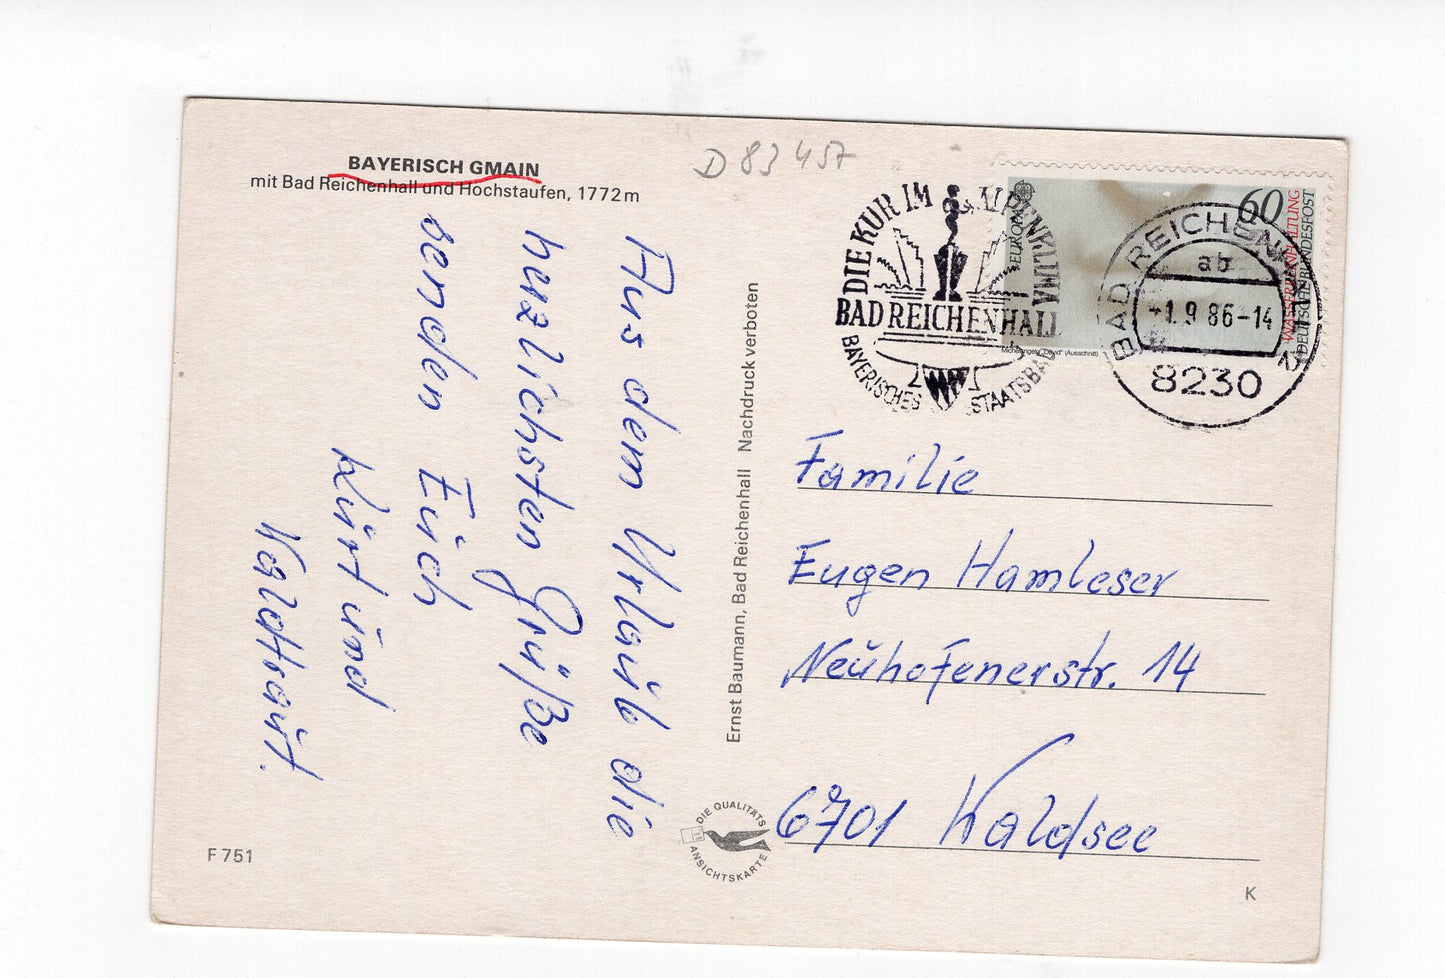 BAYERISCH GMAIN
mit Bad Reichenhall und Hochstaufen, 1772 m
D 83457
Aus dem Urlaub die
herzlichsten Grüße
senden Euch
Kurt und
Waldtraut.
Ernst Baumann, Bad Reichenhall Nachdruck verboten
DIE KUR IM ALPENKLIMA
BAD REICHENHALL
BAYERISCHES STAATSBAD
EUROPA
60
WASSERREINHALTUNG
DEUTSCHE BUNDESPOST
Michelangelo "David" (Ausschnitt)
BAD REICHENHALL 2
ab
-1.9.86-14
8230
Familie
Eugen Hamleser
Neuhofenerstr. 14
6701 Waldsee
DIE QUALITÄTS
ANSICHTSKARTE
F 751
K